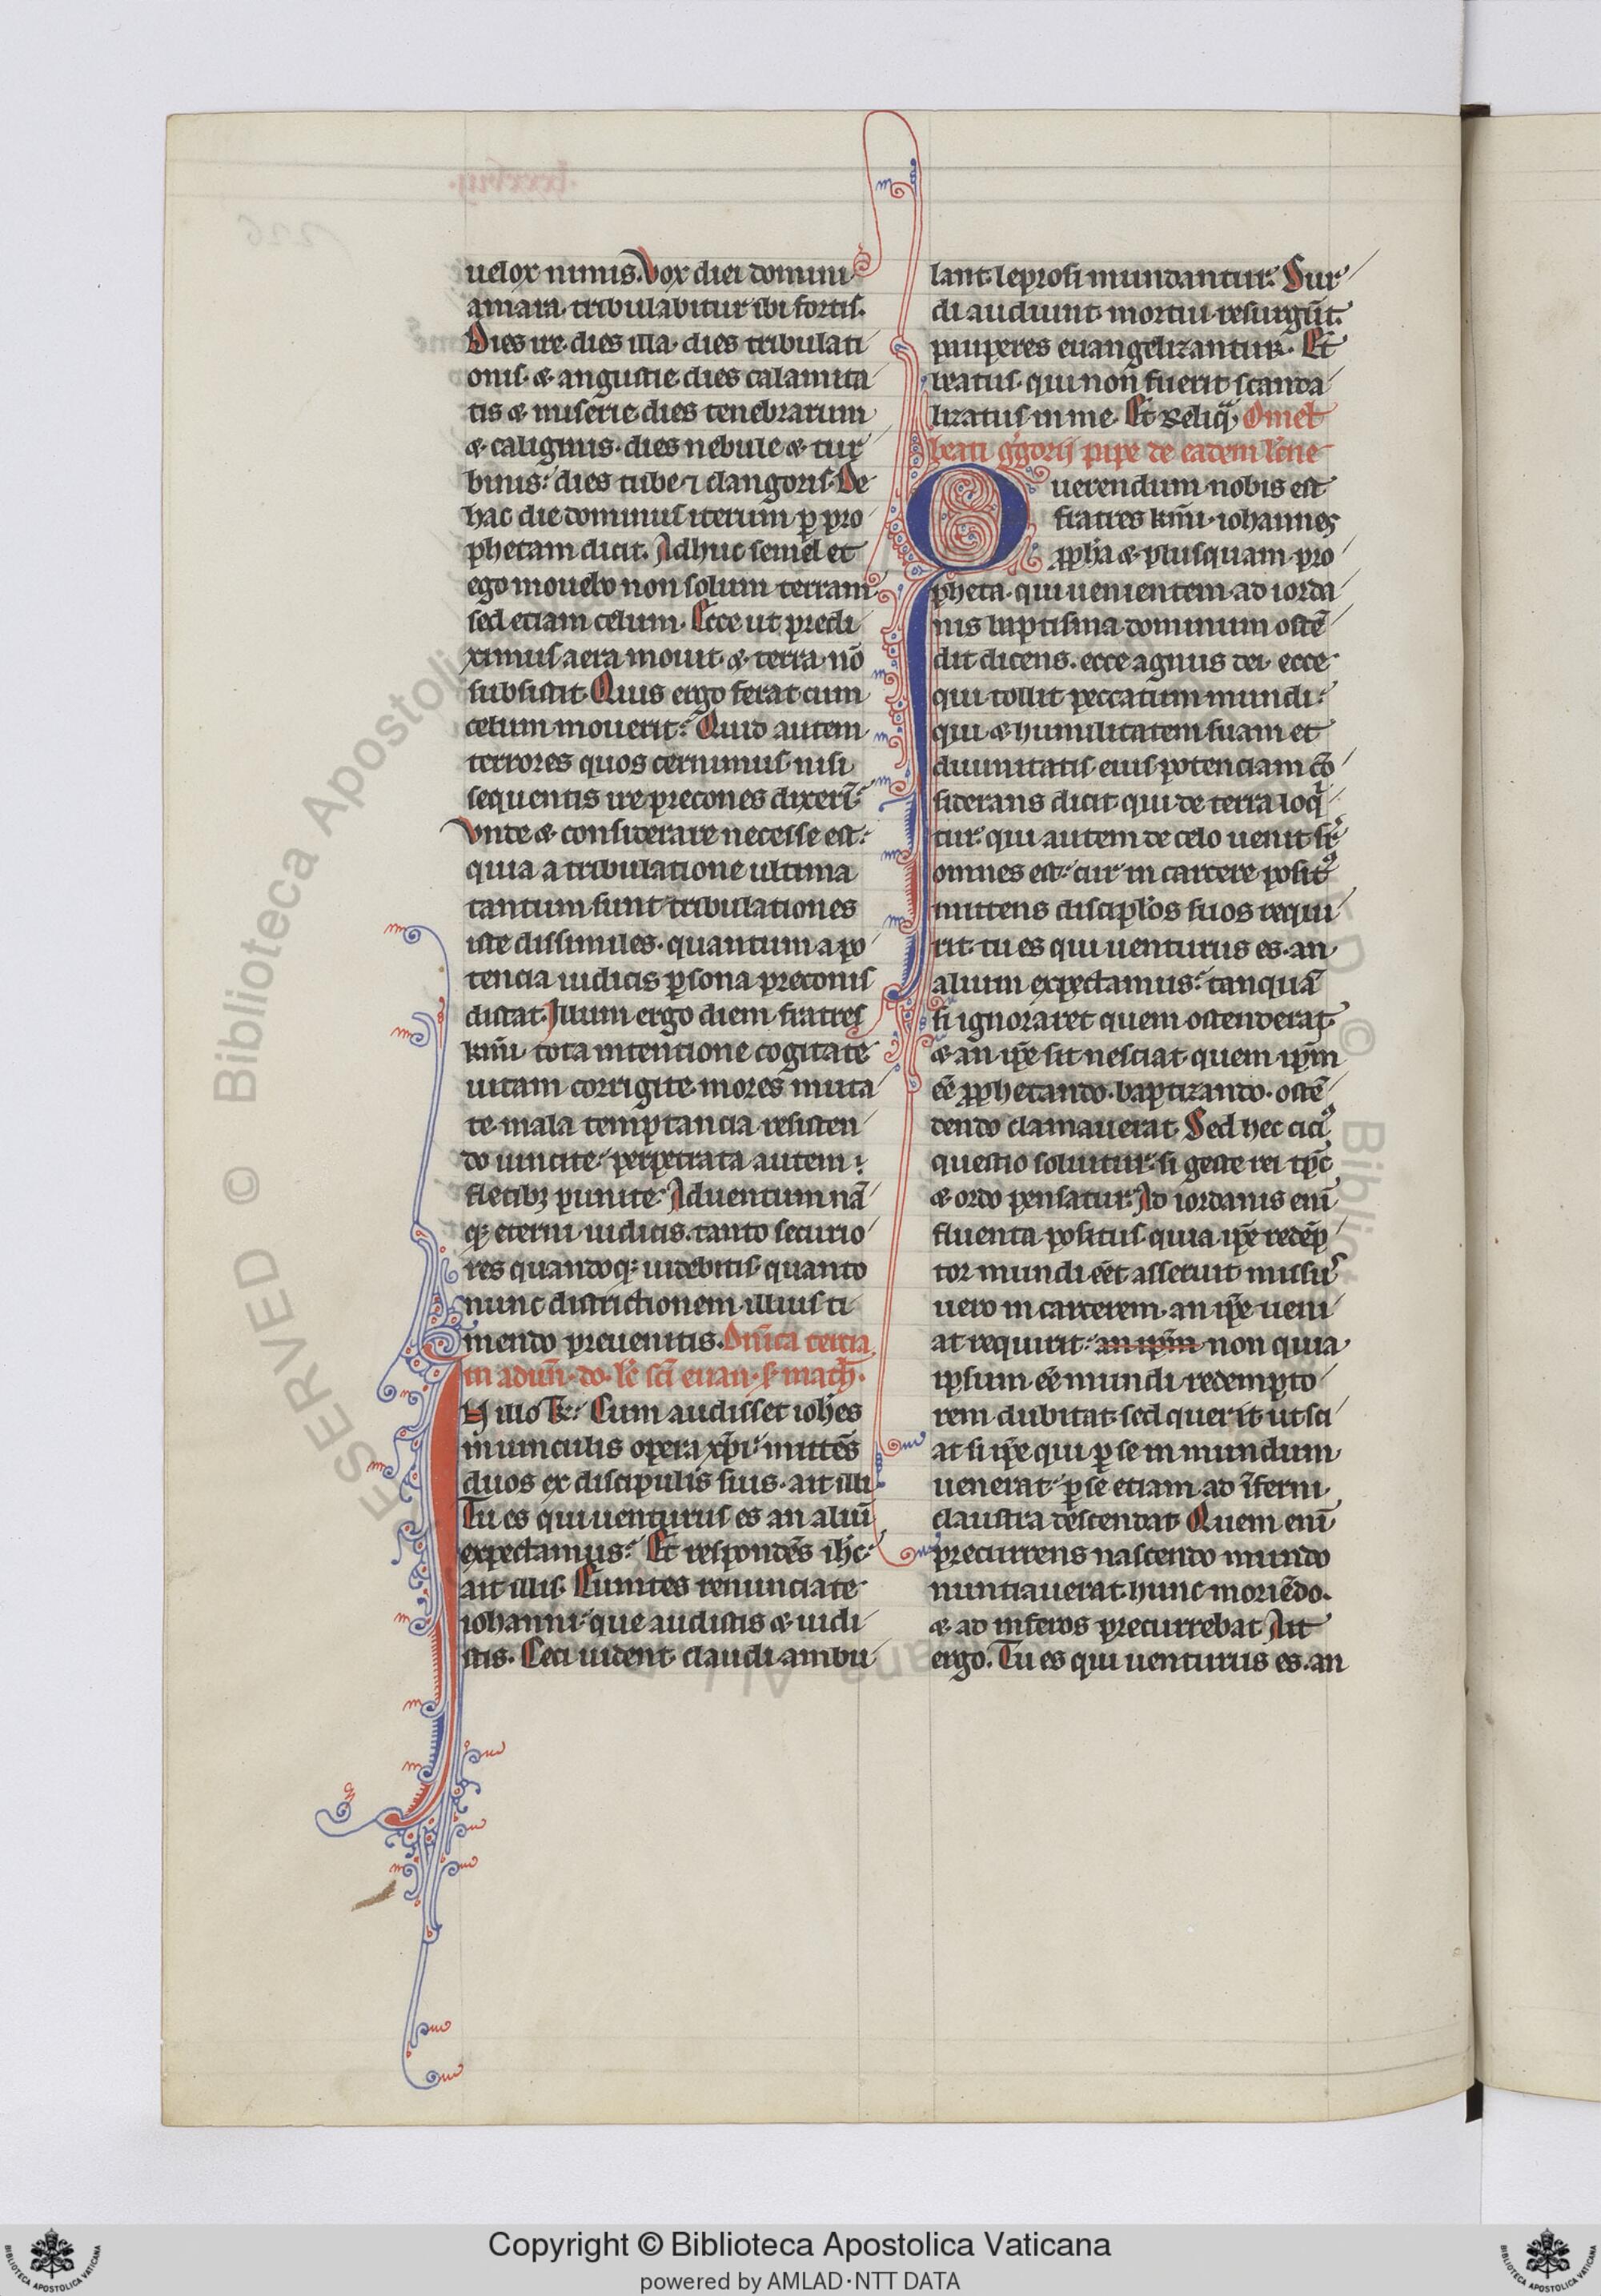 uelox nimis. Vox diei domini
amara. tribulabitur ibi fortis.
Dies ire dies illa. dies tribulati
onis. & angustie dies calamita
tis & miserie dies tenebrarum
& caliginis. dies nebule & tur
binis: dies tube ⁊ clangoris. De
hac die dominus iterum ꝑ pro
phetam dicit. Adhuc semel et
ego mouebo non solum terram
sed etiam celum. Ecce ut predi
ximus aera mouit. & terra nō
subsistit. Quis ergo ferat cum
celum mouerit: Quid autem
terrores quos cernimus nisi
sequentis ire precones dixerī:
Vnde & considerare necesse est:
quia a tribulatione ultima
tantum sunt tribulationes
iste dissimiles. quantum a po
tencia iudicis ꝑsona preconis
distat. Illum ergo diem fratres
kmī tota intentione cogitate
uitam corrigite mores muta
te. mala temptancia resisten
do uincite: perpetrata autem
fletibꝫ punite: Aduentum nā
qꝫ eterni iudicis. tanto securio
res quandoqꝫ uidebitis quanto
nunc districtionem illius ti
mendo preuenitis. Dn̄ica tercia
in aduen̄. do. lc̄ sc̄i euan. s. math̄.
In illo t̄: Cum audisset ioh̄es
in uinculis opera xp̄i: mittēs
duos ex discipulis suis. ait illi
Tu es qui uenturus es an aliū
expectamus: Et respondēs ih̄c
ait illis. Euntes renunciate
iohanni: que audistis & uidi
stis. Ceci uident claudi ambu
lant. leprosi mundantur: Sur
di audiunt mortui resurgūt.
pauperes euangelizantur. Et
beatus. qui non fuerit scanda
lizatus in me. Et reliq̄. Omel
beati ḡgorii pape de eadem lc̄ne
Querendum nobis est
fratres kmī. iohannes
ꝓph̄a & plusquam pro
pheta. qui uenientem ad iorda
nis baptisma dominum ostē
dit dicens. ecce agnus dei ecce
qui tollit peccatum mundi:
qui & humilitatem suam et
diuinitatis eius potenciam cō
siderans dicit qui de terra loqͣ
tur: qui autem de celo uenit sr̄
omnes est: cur in carcere positꝰ
mittens disciplōs suos requi
rit. tu es qui uenturus es. an
alium expectamus: tanquā
si ignoraret quem ostenderat.
& an ip̄e sit nesciat quem ip̄m
eē ꝓphetando. baptizando. ostē
dendo clamauerat. Sed hec ciciꝰ
questio soluitur: si geste rei tp̄c
& ordo pensatur: Ad iordanis enī
fluenta positus. quia ip̄e redēp
tor mundi eēt asseruit missuꝰ
uero in carcerem. an ip̄e ueni
at requirit: an ip̄m non quia
ipsum eē mundi redempto
rem dubitat sed querit ut sci
at si ip̄e qui ꝑ se in mundum
uenerat: ꝑ se etiam ad īferni
claustra descendat. Quem enī
precurrens nascendo mundo
nuntiauerat hunc moriēdo.
& ad inferos precurrebat. Ait
ergo. Tu es qui uenturus es. an
Copyright © Biblioteca Apostolica Vaticana
powered by AMLAD·NTT DATA